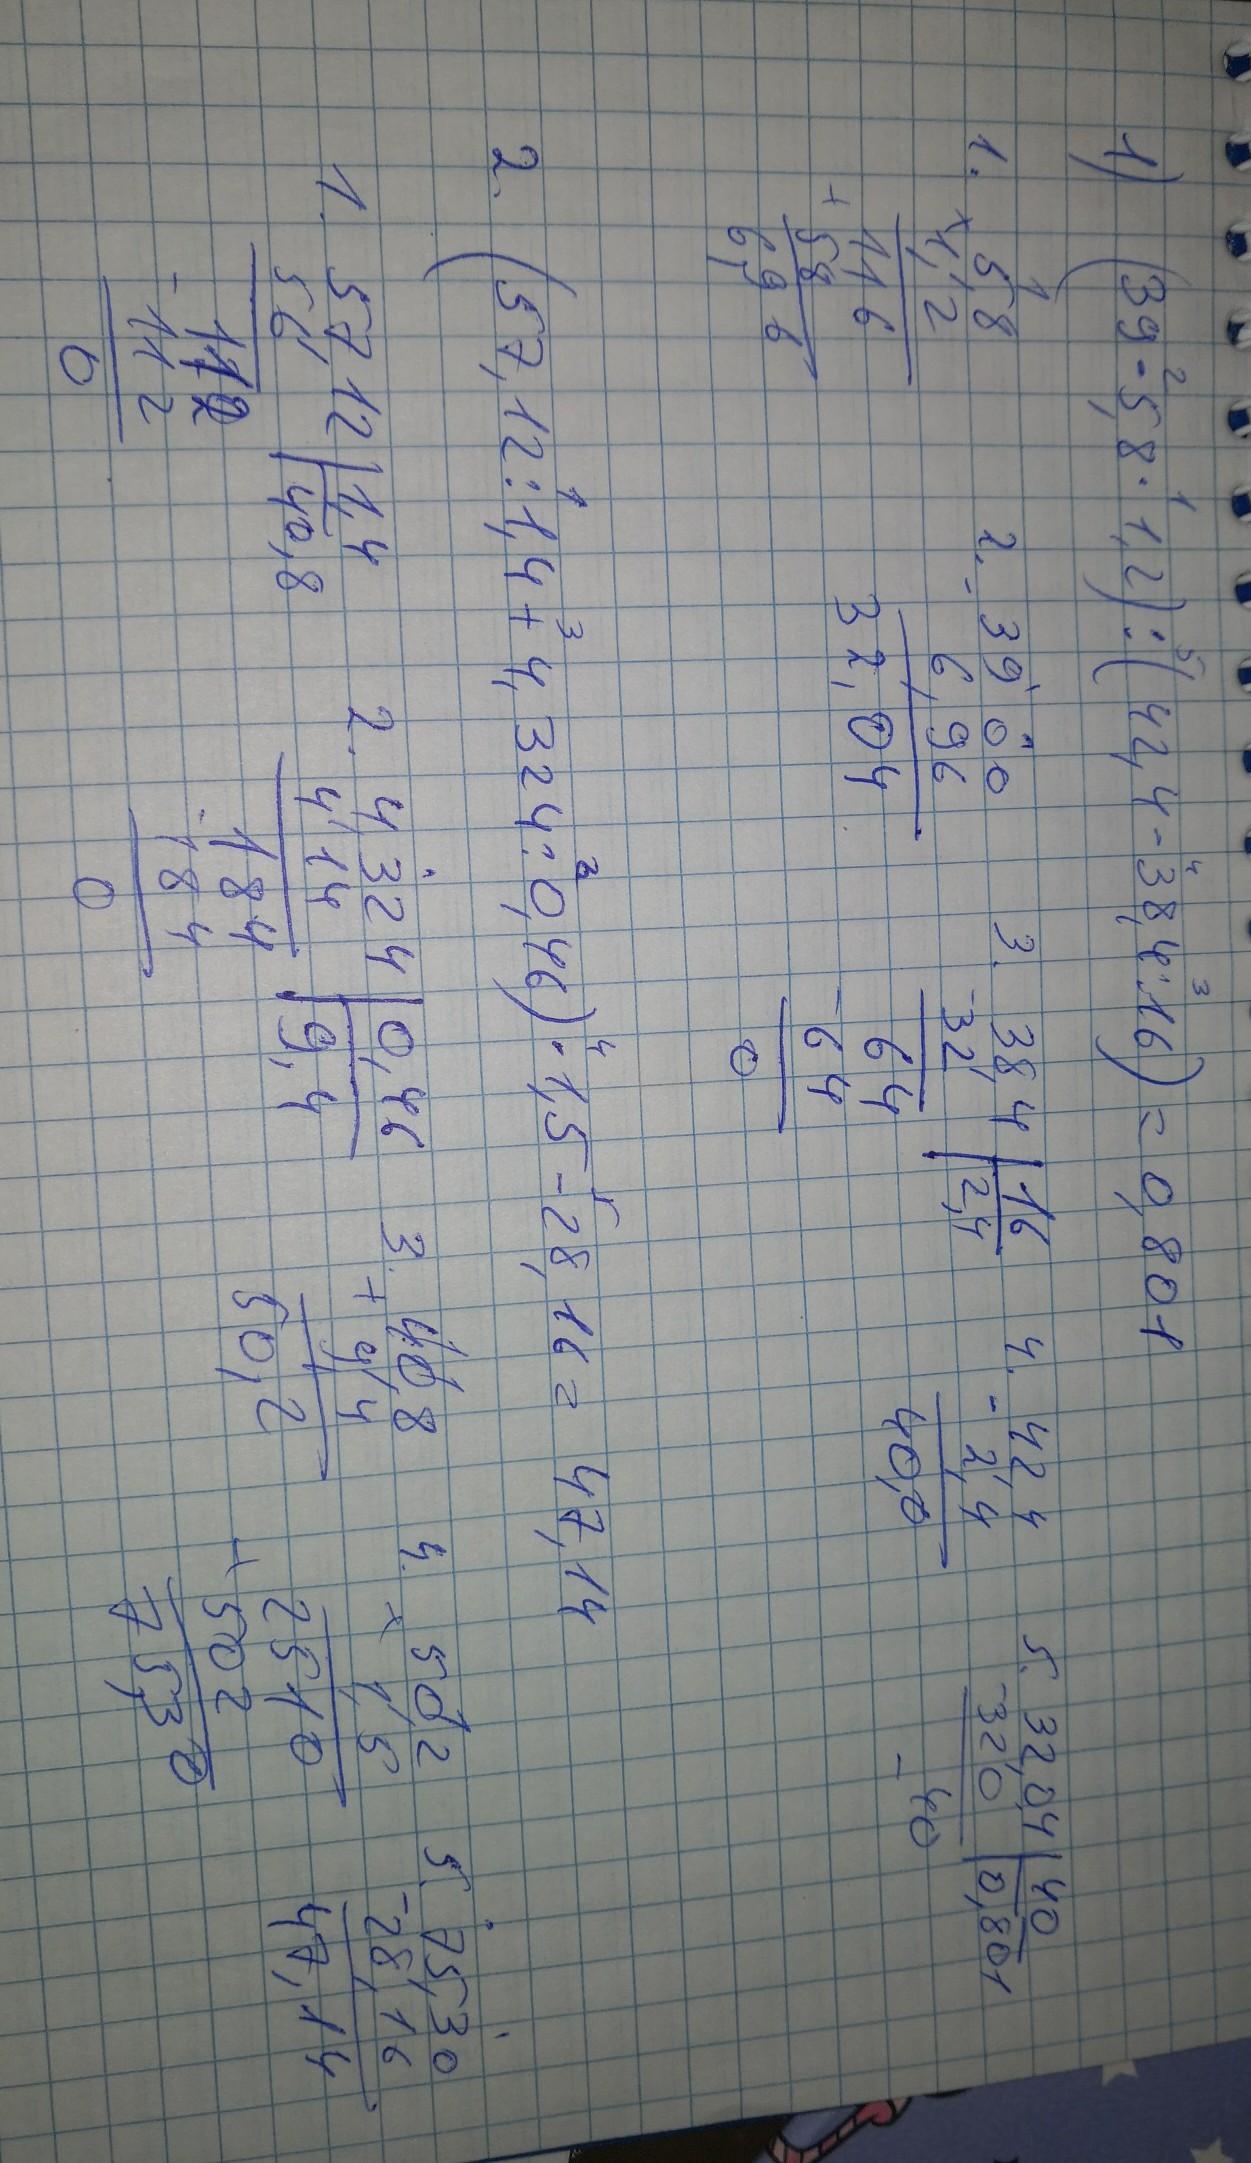 1) (39 - 5,8 · 1,2) : (42,4 - 38,4 : 16) = 0,801
2 1 5 4 3
1. × 5,8
1,2
116
+ 58
6,96
2. - 39,00
6,96
32,04
3. 38,4 | 16
- 32 | 2,4
64
- 64
0
4. - 42,4
2,4
40,0
5. 32,04 | 40
- 320 | 0,801
40
-
2. (57,12 : 1,4 + 4,324 : 0,46) · 1,5 - 28,16 = 47,14
1 3 2 4 5
1. 57,12 | 1,4
56 | 40,8
112
- 112
0
2. 4,324 | 0,46
4 14 | 9,4
184
- 184
0
3. + 40,8
9,4
50,2
4. × 50,2
1,5
2510
+ 502
75,30
5. 75,30
- 28,16
47,14